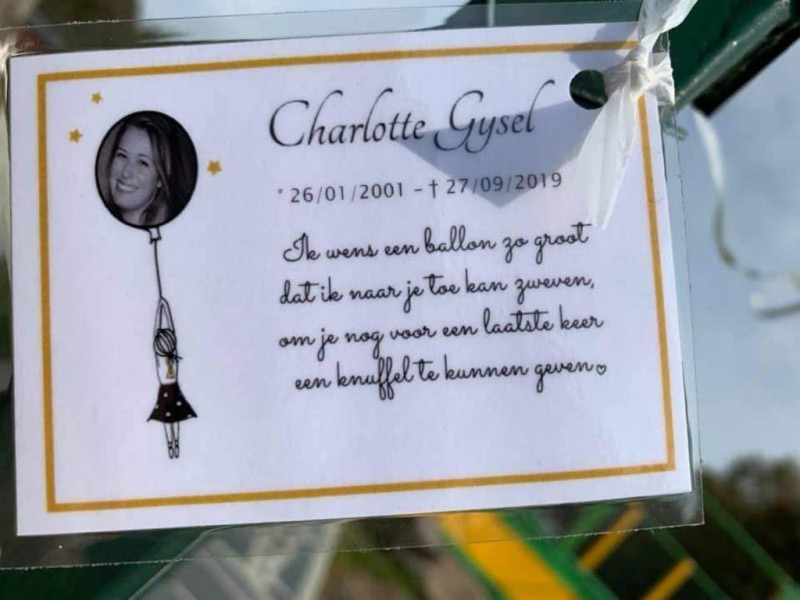 Charlotte Gysel
° 26/01/2001 - † 27/09/2019
Ik wens een ballon zo groot
dat ik naar je toe kan zweven,
om je nog voor een laatste keer
een knuffel te kunnen geven♡